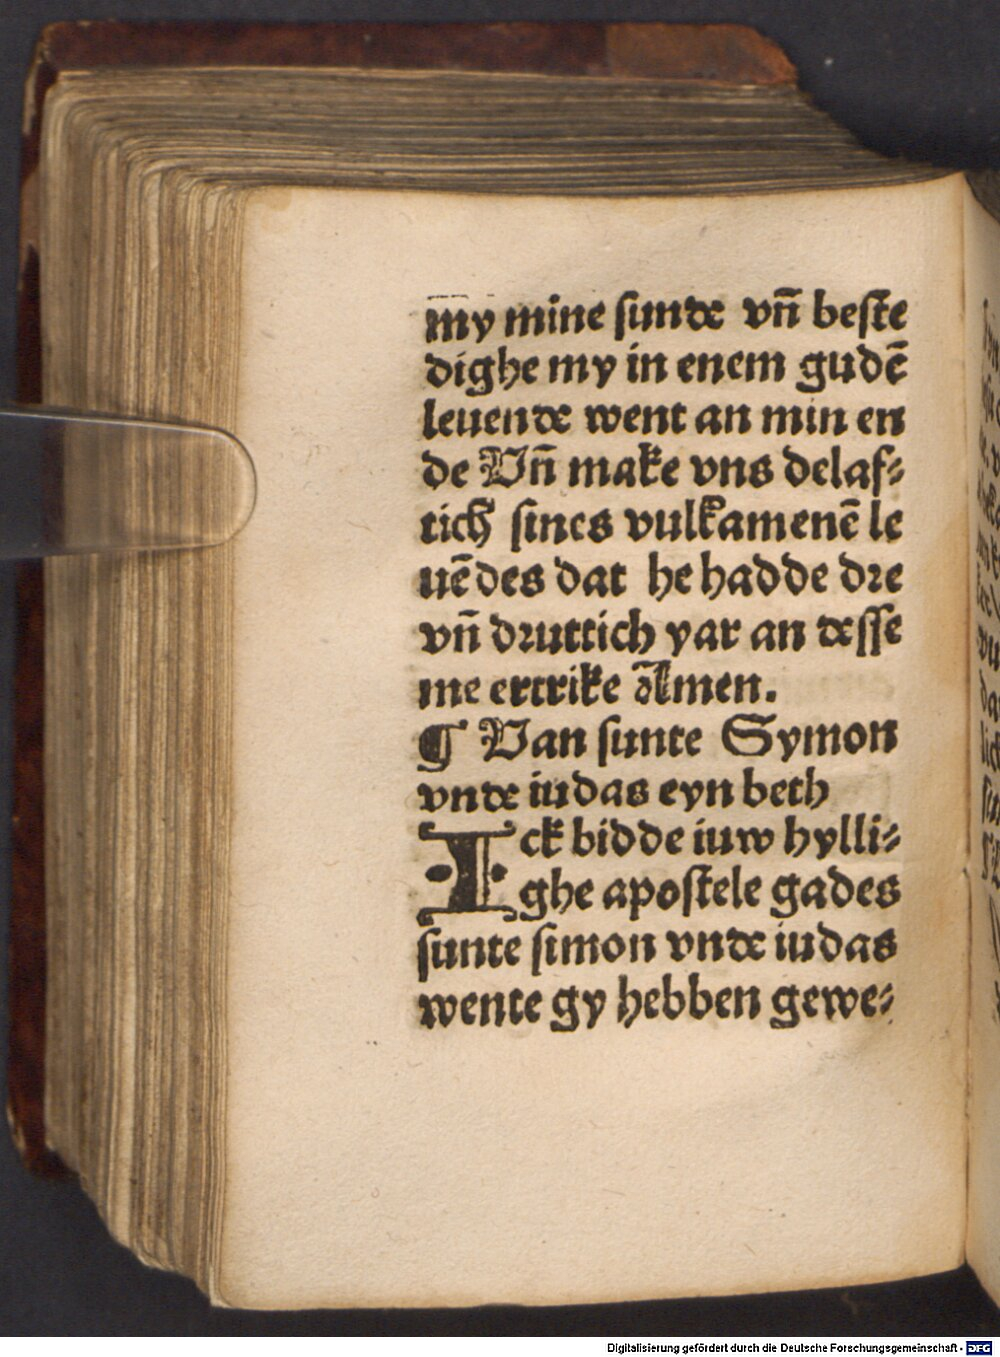 my mine sunde vn̄ beste
dighe my in enem gudē
leuende went an min en
de Vn̄ make vns delaf⸗
tich sines vulkamenē le
uēdes dat he hadde dre
vn̄ druttich yar an desse
me ertrike Amen.
¶ Van sunte Symon
vnde iudas eyn beth
Ick bidde iuw hylli⸗
ghe apostele gades
sunte simon vnde iudas
wente gy hebben gewe⸗
Digitalisierung gefördert durch die Deutsche Forschungsgemeinschaft - DFG